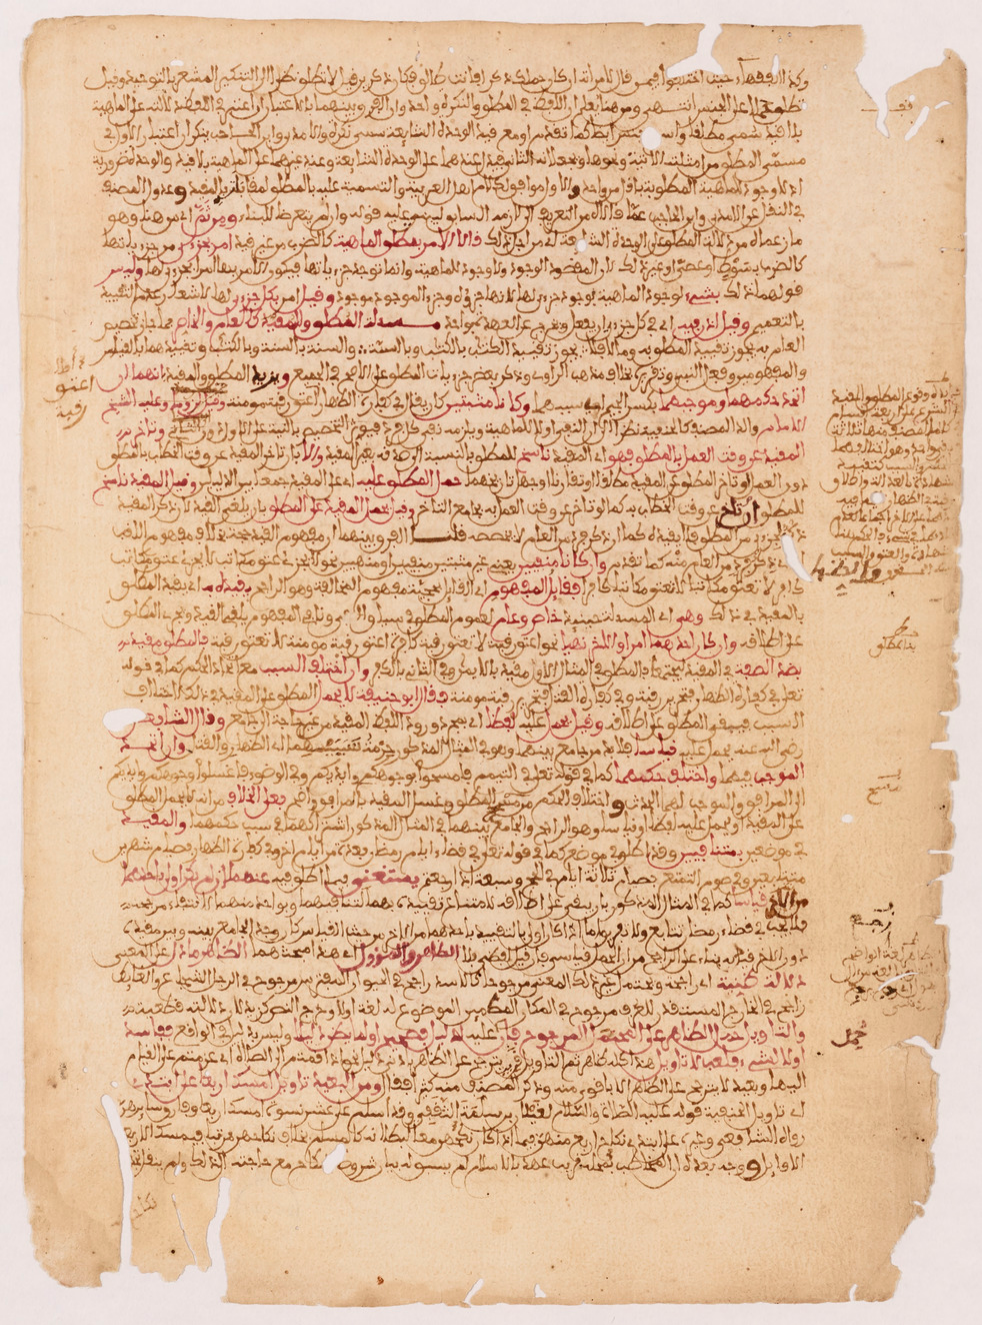 وكذا الفقهاء حيث اختلفوا فيمن قال لامراته ان كان حملك ذكرا فانت طالق فكان ذكرين قيل لا تطلق نظرا الى التنكير المشعر بالتوحيد وقيل
تطلق حملا على الجنس انتهى ومن هنا يعلم ان اللفظ في المطلق والنكرة واحد وان الفرق بينهما بالاعتبار ان اعتبر في اللفظ دلالته على الماهية
بلا قيد سمي مطلقا واسم جنس ايضا كما تقدم او مع قيد الوحدة الشايعة سمي نكرة والامدي وابن الحاجب ينكران اعتبار الاول في
مسمى المطلق من امثلته الاتية ونحوها ويجعلانه الثاني فيدل عندهما على الوحدة الشايعة وعند غيرهما على الماهية بلا قيد والوحدة ضرورية
اذ لا وجود للماهية المطلوبة باقل من واحد والاول موافق لكلام اهل العربية والتسمية عليه بالمطلق لمقابلة المقيد وعدول المصنف
في النقل عن الامدي وابن الحاجب عما قالاه من التعريف الى لازمه السابق ليبني عليه قوله وان لم يتعرض للبناء ومن ثم اي من هنا وهو
ما زعماه من دلالة المطلق على الوحدة الشايعة اي من اجل ذلك قالا الامر بمطلق الماهية كالضرب من غير قيد امر بجزءي من جزءياتها
كالضرب بسوط او عصى او غير ذلك لان المقصود الوجود ولا وجود للماهية وانما توجد جزءياتها فيكون الامر بها امرا بجزءي لها وليس
قولهما ذلك بشيء لوجود الماهية بوجود جزءي لها لانها جزءه وجزء الموجود موجود وقيل امر بكل جزءي لها لاشعار عدم التقييد
بالتعميم وقيل اذن فيه اي في كل جزءي ان يفعل ويخرج عن العهدة بواحد مسئلة المطلق والمقيد كالعام والخاص فما جاز تخصيص
العام به يجوز تقييد المطلق به وما لا فلا يجوز تقييد الكتاب بالكتاب وبالسنة والسنة بالسنة وبالكتاب وتقييدهما بالقياس
والمفهومين وفعل النبي وتقريره بخلاف مذهب الراوي وذكر بعض جزءيات المطلق على الاصح في الجميع ويزيد المطلق والمقيد انهما ان
اتحد حكمهما وموجبهما بكسر الجيم اي سببهما وكانا مثبتين كان يقال في كفارة الظهار اعتق رقبة مومنة
المقيد عن وقت العمل بالمطلق فهو اي المقيد ناسخ للمطلق بالنسبة الى صدقه بغير المقيد والا بان تاخر المقيد عن وقت الخطاب بالمطلق
دون العمل او تاخر المطلق عن المقيد مطلقا او تقارنا او جهل تاريخهما حمل المطلق عليه اي على المقيد جمعا بين الدليلين وقيل المقيد ناسخ
للمطلق ان تاخر عن وقت الخطاب به كما لو تاخر عن وقت العمل به بجامع التاخر وقيل يحمل المقيد على المطلق بان يلغى القيد لان ذكر المقيد
ذكر لجزءي من المطلق فلا يقيده كما ان ذكر فرد من العام لا يخصصه قلنا الفرق بينهما ان مفهوم القيد حجة بخلاف مفهوم اللقب
الذي ذكر فرد من العام منه كما تقدم وان كانا منفيين يعني غير مثبتين منفيين او منهيين نحو لا يجزي عتق مكاتب لا يجزي عتق مكاتب
كافر لا تعتق مكاتبا لا تعتق مكاتبا كافرا فقايل المفهوم اي القايل بحجية مفهوم المخالفة وهو الراجح يقيده به اي يقيد المطلق
بالمقيد في ذلك وهي اي المسئلة حينيذ خاص وعام لعموم المطلق في سياق النفي ونافي المفهوم يلغي القيد ويجري المطلق
على اطلاقه وان كان احدهما امرا والاخر نهيا نحو اعتق رقبة لا تعتق رقبة كافرة اعتق رقبة مومنة لا تعتق رقبة فالمطلق مقيد
بضد الصفة في المقيد ليجتمعا فالمطلق في المثال الاول مقيد بالايمان وفي الثاني بالكفر وان اختلف السبب مع اتحاد الحكم كما في قوله
تعلى في كفارة الظهار فتحرير رقبة وفي كفارة القتل فتحرير رقبة مومنة فقال ابو حنيفة لا يحمل المطلق على المقيد في ذلك لاختلاف
السبب فيبقى المطلق على اطلاقه وقيل يحمل عليه لفظا اي بمجرد ورود اللفظ المقيد من غير حاجة الى جامع وقال الشافعي
رضي الله عنه يحمل عليه قياسا فلا بد من جامع بينهما وهو في المثال المذكور حرمة سببيهما اي الظهار والقتل وان اتحد
الموجب فيهما واختلف حكمهما كما في قوله تعلى في التيمم فامسحوا بوجوهكم وايديكم وفي الوضوء فاغسلوا وجوهكم وايديكم
الى المرافق والموجب لهما الحدث واختلاف الحكم من مسح المطلق وغسل المقيد بالمرافق واضح فعلى الخلاف من انه لا يحمل المطلق
على المقيد او يحمل عليه لفظا او قياسا وهو الراجح والجامع بينهما في المثال المذكور اشتراكهما في سبب حكمهما والمقيد
في موضعين بمتنافيين وقد اطلق في موضع كما في قوله تعلى في قضاء ايام رمضان فعدة من ايام اخر وفي كفارة الظهار فصيام شهرين
متتابعين وفي صوم التمتع فصيام ثلاثة ايام في الحج وسبعة اذا رجعتم يستغنى فيما اطلق فيه عنهما ان لم يكن اولى باحدهما
من الاخر قياسا كما في المثال المذكور بان يبقى على اطلاقه لامتناع تقييده بهما لتنافيهما وبواحد منهما لانتفاء مرجحه
فلا يجب في قضاء رمضان تتابع ولا تفريق اما اذا كان اولى بالتقييد باحدهما من الاخر من حيث القياس كان وجد الجامع بينه وبين مقيده
دون الاخر قيد به بناء على الراجح من ان الحمل قياسي فان قيل لفظي فلا الظاهر والمؤول اي هذا مبحثهما الظاهر ما دل على المعنى
دلالة ظنية اي راجحة ويحتمل غير ذلك المعنى مرجوحا كالاسد راجح في الحيوان المفترس مرجوح في الرجل الشجاع والغايط
راجح في الخارج المستقذر للعرف مرجوح في المكان المطمين الموضوع له لغة اولا وخرج النص كزيد لان دلالته قطعية
والتاويل حمل الظاهر على المحتمل المرجوح فان حمل عليه لدليل فصحيح او لما يظن دليلا وليس بدليل في الواقع ففاسد
او لا لشيء فلعب لا تاويل هذا كله ظاهر ثم التاويل قريب يترجح على الظاهر بادنى دليل نحو اذا قمتم الى الصلاة اي عزمتم على القيام
اليها وبعيد لا يترجح على الظاهر الا باقوى منه وذكر المصنف منه كثيرا فقال ومن البعيد تاويل امسك اربعا على ابتدئ
اي تاويل الحنفية قوله عليه الصلاة والسلام لغيلان بن سلمة الثقفي وقد اسلم على عشر نسوة امسك اربعا وفارق سايرهن
رواه الشافعي وغيره على ابتدئ نكاح اربع منهن فيما اذا كان نكحهن معا لبطلانه كالمسلم بخلاف نكاحهن مرتبا فيمسك الاربع
الاوايل ووجه بعده ان المخاطب بمحله قريب عهد بالاسلام لم يسبق له بيان شروط النكاح مع حاجته الى ذلك ولم ينقل تجديد
اعتق
رقبة